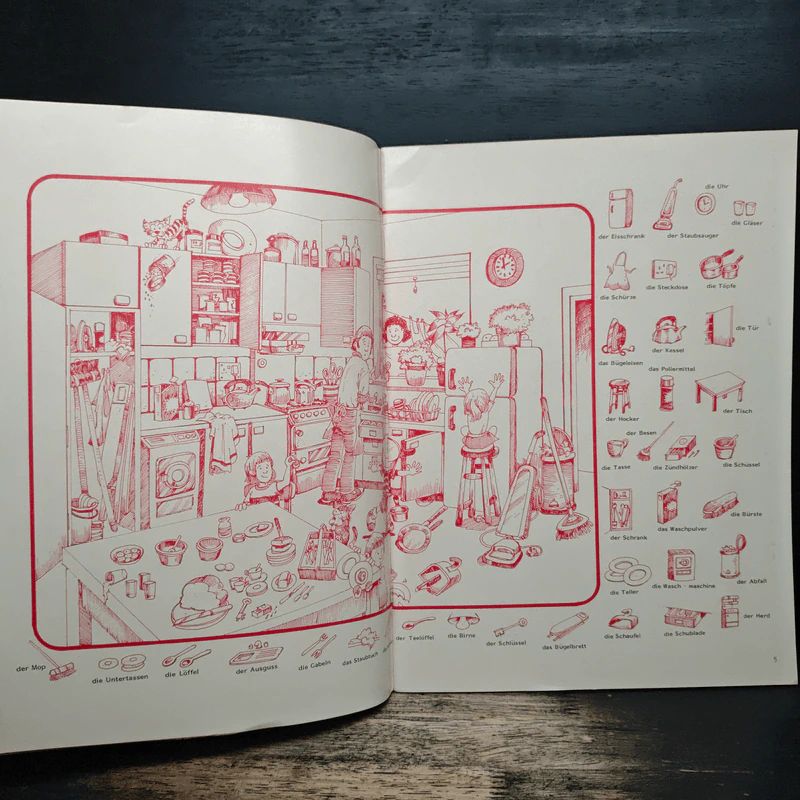 die Uhr
der Eisschrank
der Staubsauger
die Gläser
die Schürze
die Steckdose
die Töpfe
das Bügeleisen
der Kessel
das Poliermittel
die Tür
der Hocker
der Tisch
der Besen
die Tasse
die Zündhölzer
die Schüssel
der Schrank
das Waschpulver
die Bürste
die Teller
die Wasch - maschine
der Abfall
der Mop
die Untertassen
die Löffel
der Ausguss
die Gabeln
das Staubtuch
der Teelöffel
die Birne
der Schlüssel
das Bügelbrett
die Schaufel
die Schublade
der Herd
5